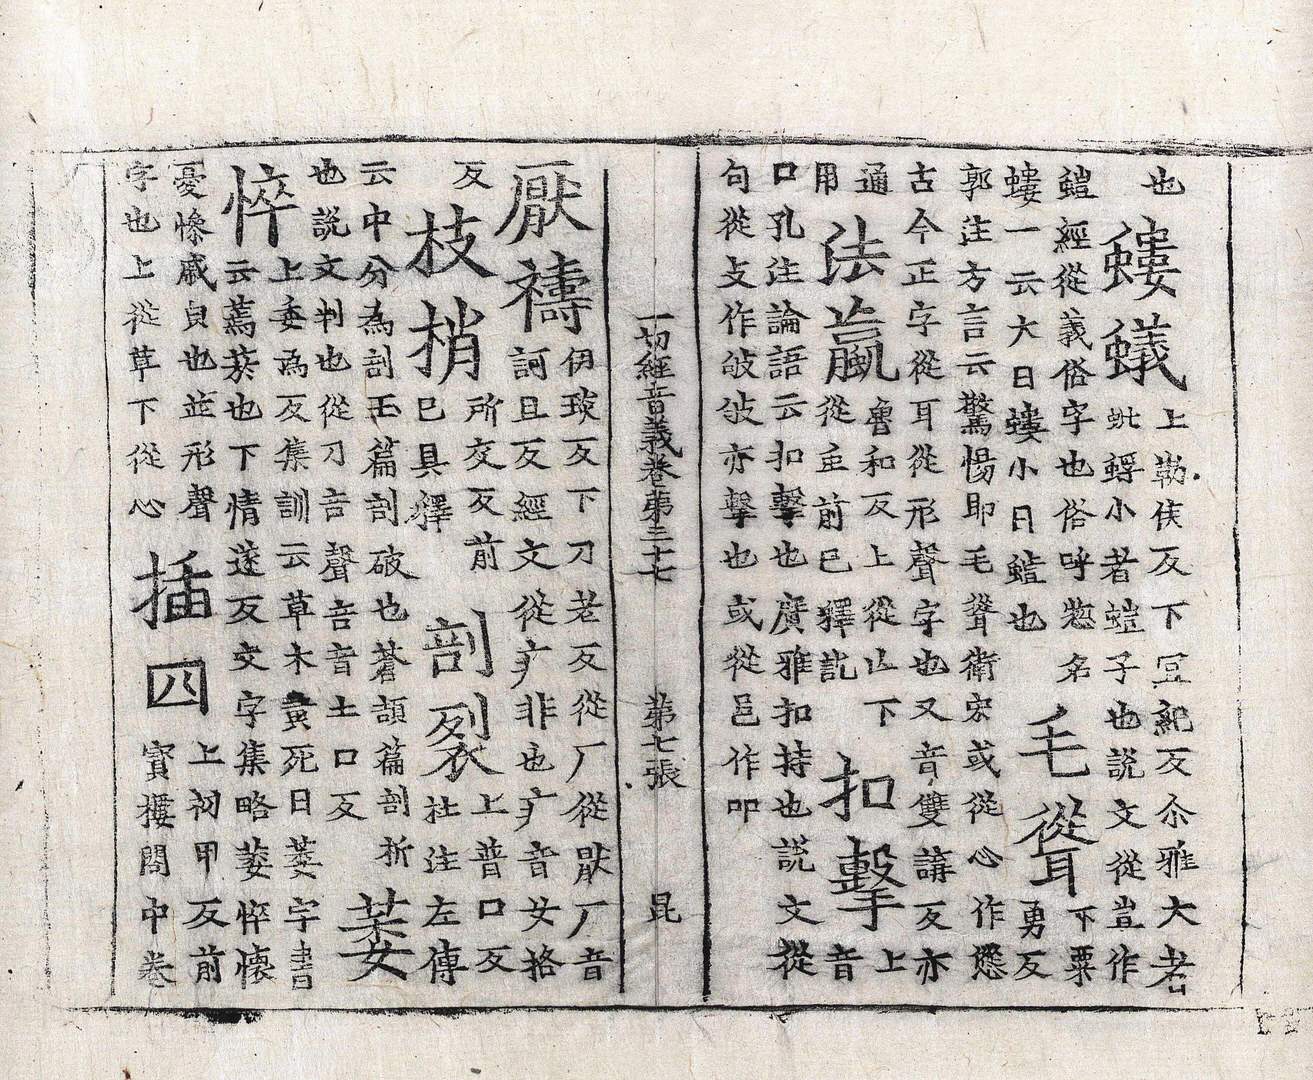 也螻蟻上勒侯反下冝紀反尒雅大者
蚍蜉小者螘子也說文從豈作
螘經從義俗字也俗呼惣名
螻一云大曰螻小曰螘也毛聳下粟
勇反
郭注方言云驚惕即毛聳衛宏或從心作㦼
古今正字從耳從形聲字也又音雙講反亦
通
用法蠃魯和反上從亾下
從虫前已釋訖扣擊上
音
口孔注論語云扣擊也廣雅扣持也說文從
句從攴作敂敂亦擊也或從邑作叩
一切經音義卷第三十七 第七張 昆
厭禱伊琰反下刀老反從厂從猒厂音
訶旦反經文從疒非也疒音女挌
反枝梢所交反前
已具釋剖裂上普口反
杜注左傳
云中分為剖玉篇剖破也蒼頡篇剖析
也說文判也從刀咅聲咅音土口反萎
悴上委為反集訓云草木黃死曰萎字書
云蔫菸也下情遂反文字集略萎悴懷
憂慘慼皃也並形聲
字也上從草下從心插四上初甲反前
寶摟閣中卷